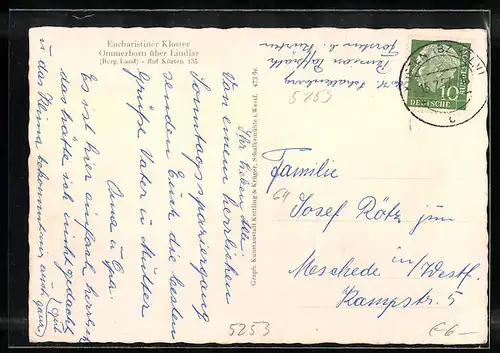 Eucharistiner Kloster
Ommerborn über Lindlar
(Berg. Land) - Ruf Kürten 135
Ihr Lieben alle
Von einem herrlichen
Sonntagsspaziergang
senden Euch die besten
Grüße Vater u. Mutter
Oma u. Opa.
Es ist hier einfach herrlich
das hätte ich nicht gedacht
das Klima bekommt uns auch ganz
gut
Graph. Kunstanstalt Kettling & Krüger, Schalksmühle i. Westf. 473 94
Pension
b. Kürten
5253
DEUTSCHE
10
Familie
64
Josef Rötz jun
Meschede in/Westf.
Kampstr. 5
5253
€ 6-